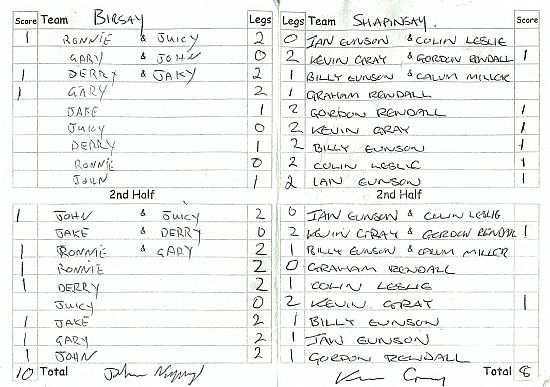 Score Team BIRSAY Legs Legs Team SHAPINSAY. Score
1 RONNIE & JUICY 2 0 IAN EUNSON & COLIN LESLIE
GARY & JOHN 0 2 KEVIN GRAY & GORDON RENDALL 1
1 DERRY & JAKY 2 1 BILLY EUNSON & CALUM MILLER
1 GARY 2 1 GRAHAM RENDALL
JAKE 1 2 GORDON RENDALL 1
JUICY 0 2 KEVIN GRAY 1
DERRY 1 2 BILLY EUNSON 1
RONNIE 0 2 COLIN LESLIE 1
JOHN 1 2 IAN EUNSON 1
2nd Half 2nd Half
1 JOHN & JUICY 2 0 IAN EUNSON & COLIN LESLIE
JAKE & DERRY 0 2 KEVIN GRAY & GORDON RENDALL 1
1 RONNIE & GARY 2 1 BILLY EUNSON & CALUM MILLER
1 RONNIE 2 0 GRAHAM RENDALL
1 DERRY 2 1 COLIN LESLIE
JUICY 0 2 KEVIN GRAY 1
1 JAKE 2 1 BILLY EUNSON
1 GARY 2 1 IAN EUNSON
1 JOHN 2 1 GORDON RENDALL
10 Total Total 8